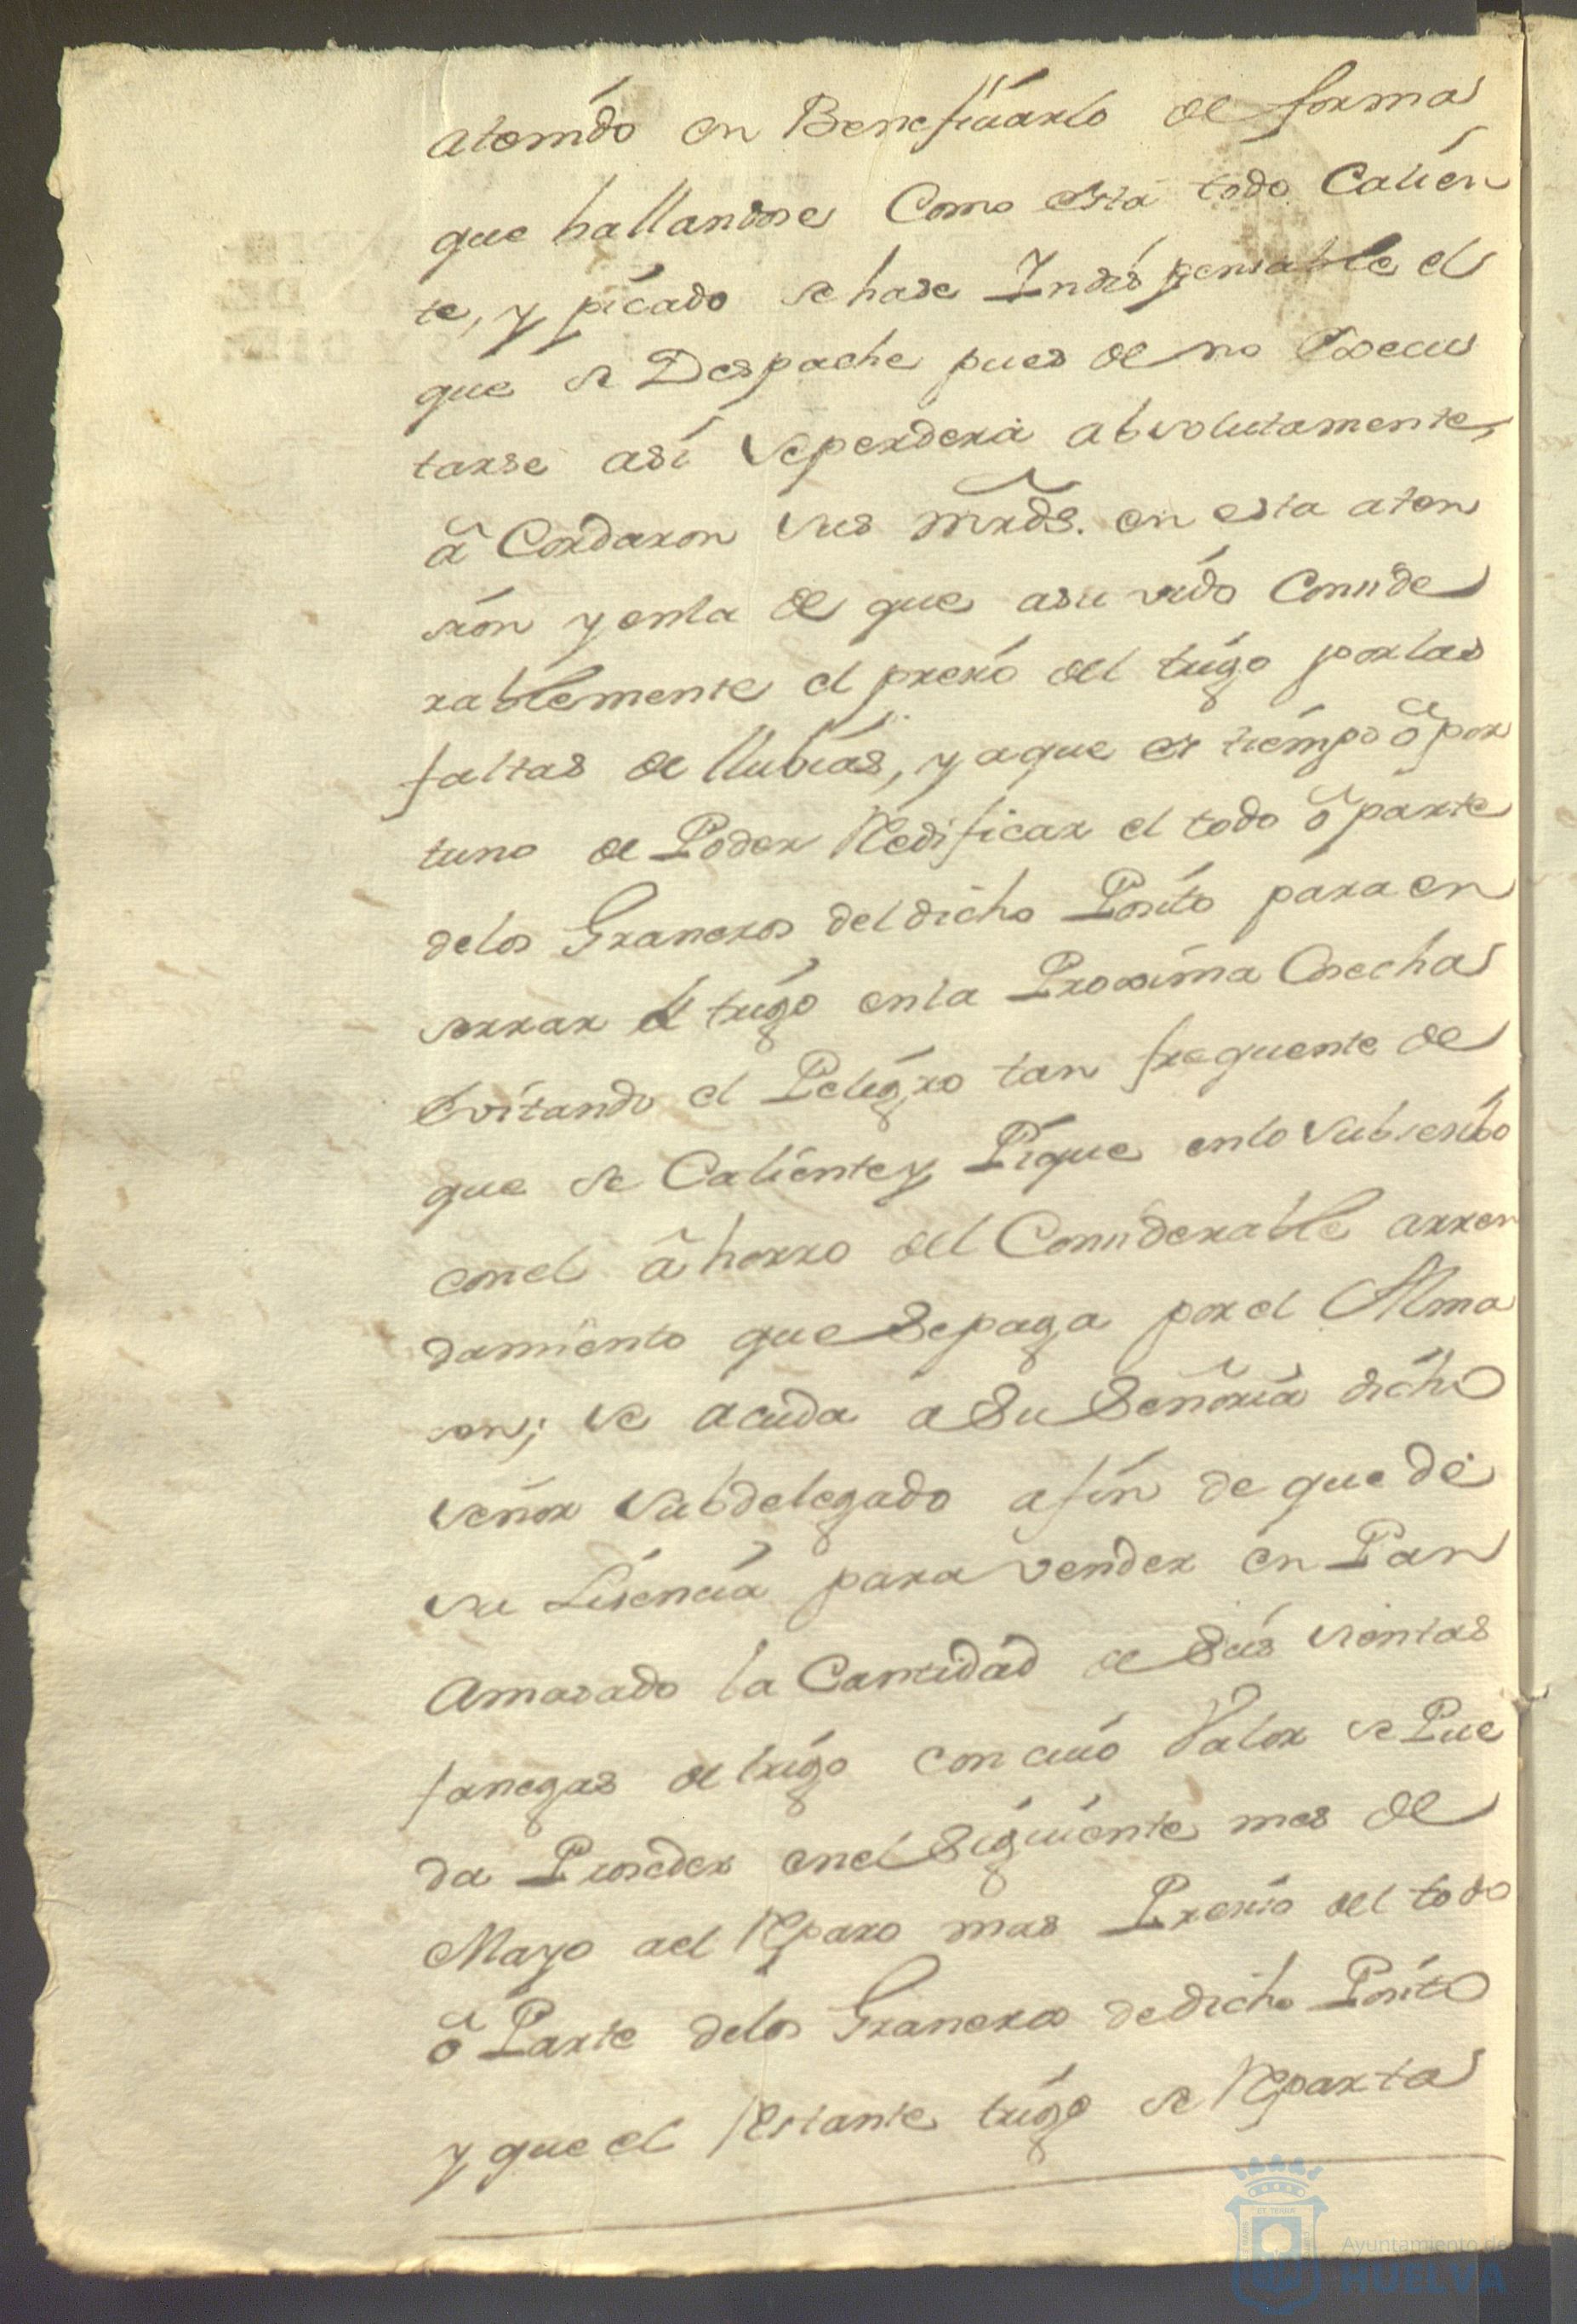 atenido en Benefisiarlo de forma
que hallandose Como está todo Calien
te, y picado se hase Indispensable el
que se Despache pues de no Execu
tarse así se perderá absolutamente,
â Cordaron sus mrds. en esta aten
sion y en la de que a su vido Conside
rablemente el presio del trigo por las
faltas de llubias, y a que es tiempo ô por
tuno de Poder Redificar el todo ô parte
de los Graneros del dicho Posito para en
serrar el trigo en la Proxima Cosecha
Evitando el Peligro tan frequente de
que se Caliente y Pique en lo Subsesibo
con el â horro del Considerable arren
damiento que se paga por el Alma
sen; se acuda a Su Señoria dicho
señor Subdelegado a fin de que dé
su Lisencia para vender en Pan
Amasado la Cantidad de Seis sientas
fanegas de trigo con cuio Valor se Pue
da Proseder en el Siguiente mes de
Mayo ael Reparo mas Presiso del todo
ô Parte de los Graneros de dicho Posito
y que el Restante trigo se Reparta
Ayuntamiento de
HUELVA